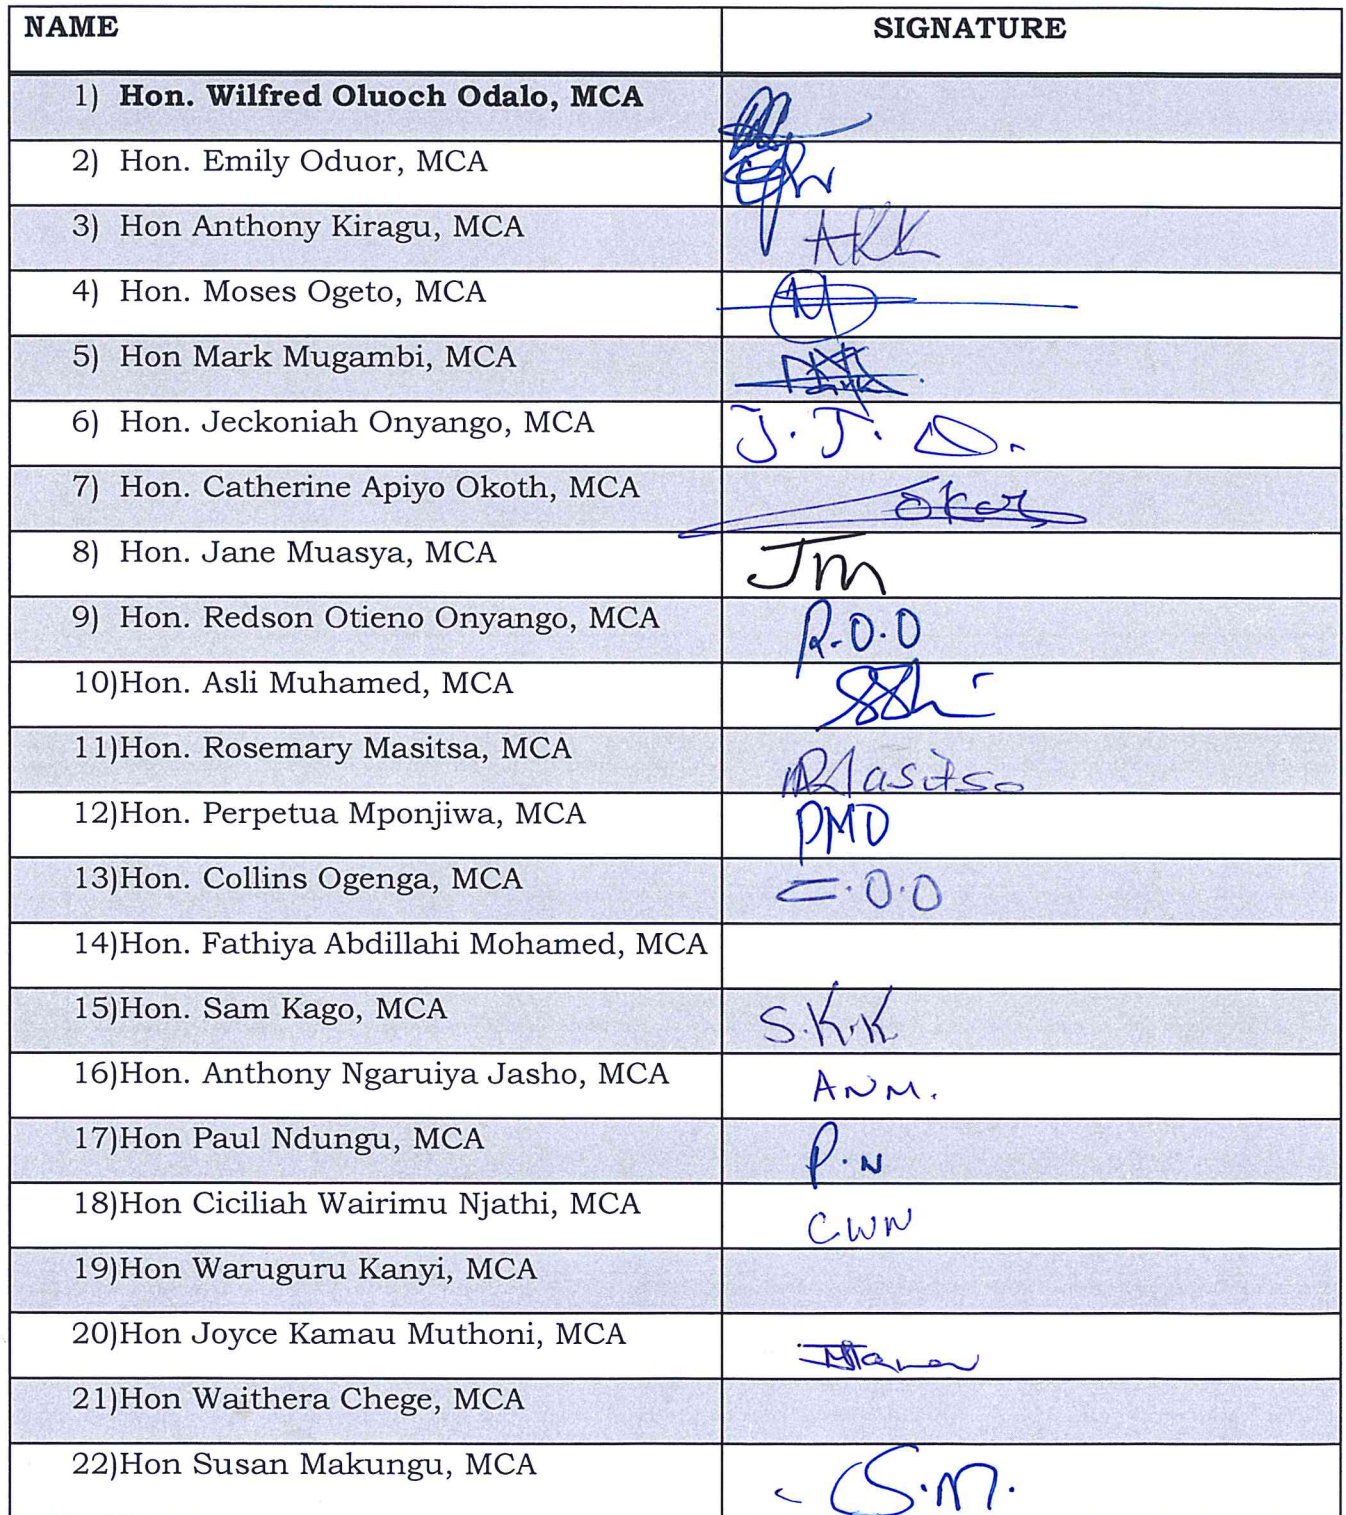 NAME SIGNATURE
1) Hon. Wilfred Oluoch Odalo, MCA
2) Hon. Emily Oduor, MCA
3) Hon Anthony Kiragu, MCA ARK
4) Hon. Moses Ogeto, MCA
5) Hon Mark Mugambi, MCA
6) Hon. Jeckoniah Onyango, MCA J.J.O.
7) Hon. Catherine Apiyo Okoth, MCA
8) Hon. Jane Muasya, MCA Jm
9) Hon. Redson Otieno Onyango, MCA R.O.O
10)Hon. Asli Muhamed, MCA
11)Hon. Rosemary Masitsa, MCA
12)Hon. Perpetua Mponjiwa, MCA PMO
13)Hon. Collins Ogenga, MCA C.O.O
14)Hon. Fathiya Abdillahi Mohamed, MCA
15)Hon. Sam Kago, MCA S.K.K
16)Hon. Anthony Ngaruiya Jasho, MCA ANM.
17)Hon Paul Ndungu, MCA P.N
18)Hon Ciciliah Wairimu Njathi, MCA CWN
19)Hon Waruguru Kanyi, MCA
20)Hon Joyce Kamau Muthoni, MCA
21)Hon Waithera Chege, MCA
22)Hon Susan Makungu, MCA S.M.